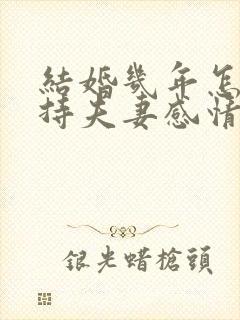 結婚幾年怎
持夫妻感情
銀光蜡槍頭